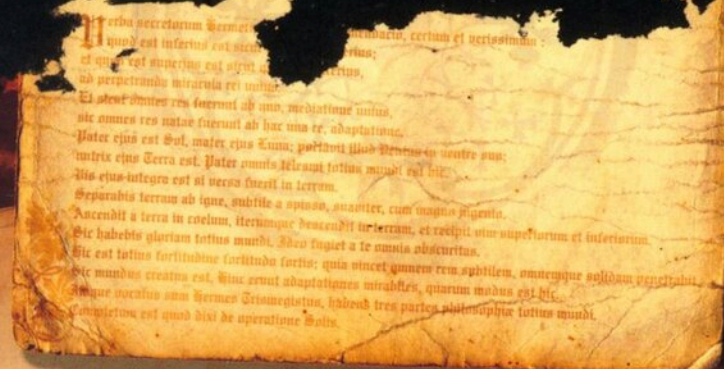 Verba secretorum Hermet mendacio, certum et verissimum:
quod est inferius est sicut erius;
et quod est superius est sicut erius,
ad perpetranda miracula rei unius.
Et sicut omnes res fuerunt ab uno, mediatione unius,
sic omnes res natae fuerunt ab hac una re, adaptatione.
Pater ejus est Sol, mater ejus Luna; portavit illud Ventus in ventre suo;
nutrix ejus Terra est. Pater omnis telesmi totius mundi est hic.
Vis ejus integra est si versa fuerit in terram.
Separabis terram ab igne, subtile a spisso, suaviter, cum magno ingenio.
Ascendit a terra in coelum, iterumque descendit in terram, et recipit vim superiorum et inferiorum.
Sic habebis gloriam totius mundi. Ideo fugiet a te omnis obscuritas.
Hic est totius fortitudine fortitudo fortis; quia vincet omnem rem subtilem, omnemque solidam penetrabit.
Sic mundus creatus est. Hinc erunt adaptationes mirabiles, quarum modus est hic.
Itaque vocatus sum Hermes Trismegistus, habens tres partes philosophiae totius mundi.
Completum est quod dixi de operatione Solis.